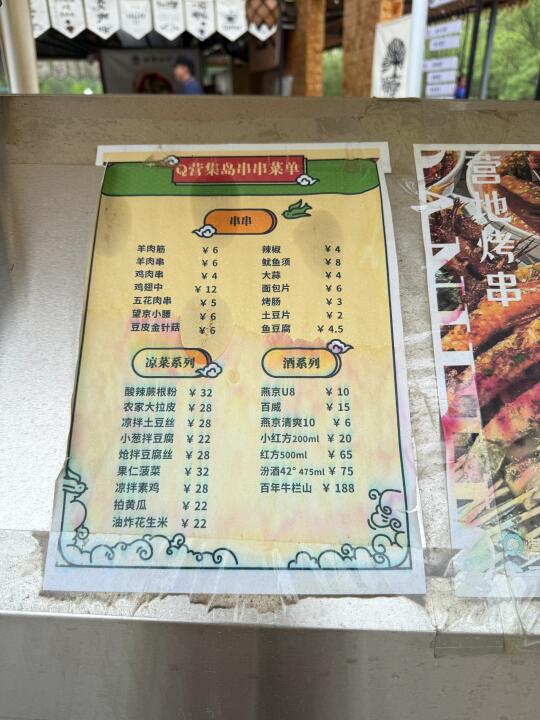 Q营集岛串串菜单
串串
羊肉筋 ¥ 6
羊肉串 ¥ 6
鸡肉串 ¥ 4
鸡翅中 ¥ 12
五花肉串 ¥ 5
望京小腰 ¥ 6
豆皮金针菇 ¥ 6
辣椒 ¥ 4
鱿鱼须 ¥ 8
大蒜 ¥ 4
面包片 ¥ 6
烤肠 ¥ 3
土豆片 ¥ 2
鱼豆腐 ¥ 4.5
凉菜系列
酸辣蕨根粉 ¥ 32
农家大拉皮 ¥ 28
凉拌土豆丝 ¥ 28
小葱拌豆腐 ¥ 22
炝拌豆腐丝 ¥ 28
果仁菠菜 ¥ 32
凉拌素鸡 ¥ 28
拍黄瓜 ¥ 22
油炸花生米 ¥ 22
酒系列
燕京U8 ¥ 10
百威 ¥ 15
燕京清爽10 ¥ 6
小红方200ml ¥ 20
红方500ml ¥ 65
汾酒42° 475ml ¥ 75
百年牛栏山 ¥ 188
营地烤串